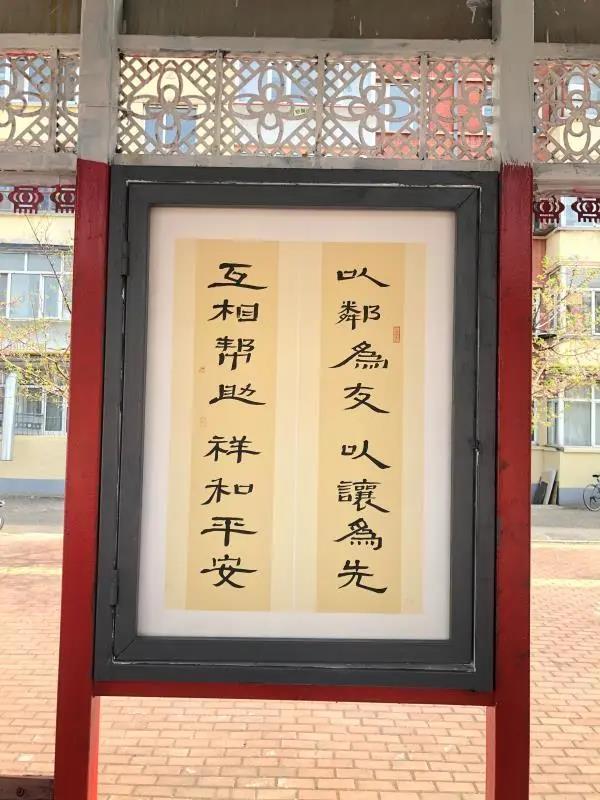 以鄰為友 以讓為先
互相帮助 祥和平安